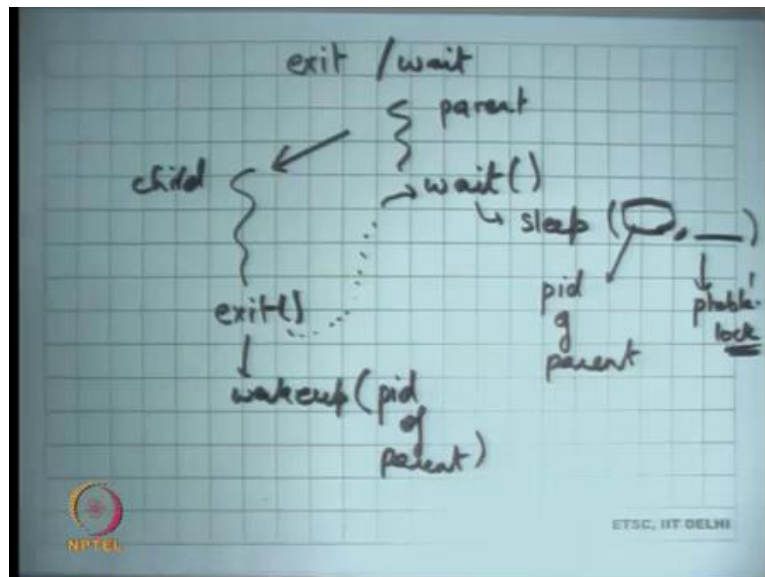 exit / wait
parent
child
wait()
sleep ( , )
pid
of
parent
ptable.
lock
exit()
wakeup(pid
of
parent)
NPTEL
ETSC, IIT DELHI